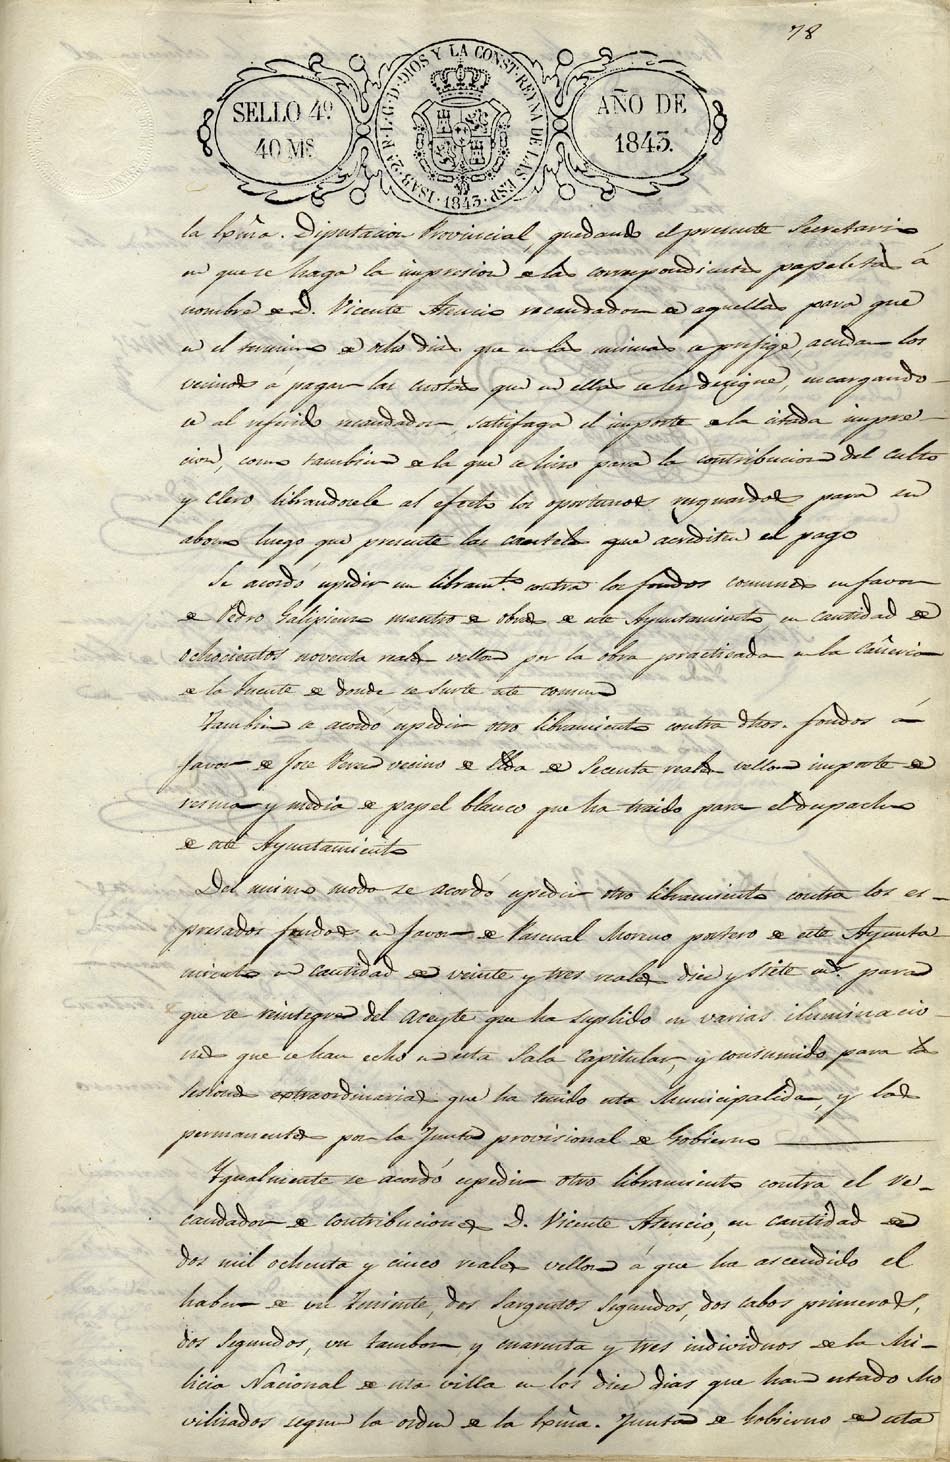 78
SELLO 4º
40 Ms
ISAB. 2ª P. L. G. D. DIOS Y LA CONST. REYNA DE LAS ESP.
1843
AÑO DE
1843.
la Exma. Diputacion Provincial, quedando el presente Secretario
en que se haga la impresion de las correspondientes papeletas á
nombre de D. Vicente Asencio recaudador de aquellas para que
en el termino de ocho dias que en las mismas se prefige, acudan los
vecinos á pagar las cuotas que en ellas se les designe, encargando-
se al referido recaudador, satisfaga el importe de la citada impre-
cion, como tambien de la que se hizo para la contribucion del culto
y Clero librandosele al efecto los oportunos resguardos para su
abono luego que presente las cartela que acrediten el pago
Se acordó espedir un libramto. contra los fondos comunes en favor
de Pedro Galipienso maestro de obras de este Ayuntamiento, en cantidad de
ochocientos noventa reales vellon por la obra practicada en la Cañeria
de la Fuente de donde se surte este comun
Tambien se acordó espedir otro libramiento contra dhos. fondos á
favor de Jose Perez vecino de Elda de Secenta reales vellon importe de
resma y media de papel blanco que ha traido para el despacho
de este Ayuntamiento
Del mismo modo se acordó espedir otro libramiento contra los es-
presados fondos en favor de Pascual Moreno portero de este Ayunta
miento en cantidad de veinte y tres reales diez y siete ms. para
que se reintegre del aceyte que ha suplido en varias iluminacio-
nes que se han echo en esta Sala Capitular, y consumido para la
sesiones extraordinarias que ha tenido esta Municipalidad, y las
permanentes por la Junta provisional de Gobierno
Igualmente se acordó espedir otro libramiento contra el re-
caudador de contribuciones D. Vicente Asencio, en cantidad de
dos mil ochenta y cinco reales vellon á que ha ascendido el
haber de un Teniente, dos Sargentos Segundos, dos cabos primeros,
dos Segundos, un tambor y cuarenta y tres individuos de la Mi-
licia Nacional de esta villa en los diez dias que han estado Mo
vilizados segun la orden de la Exma. Junta de Gobierno de esta